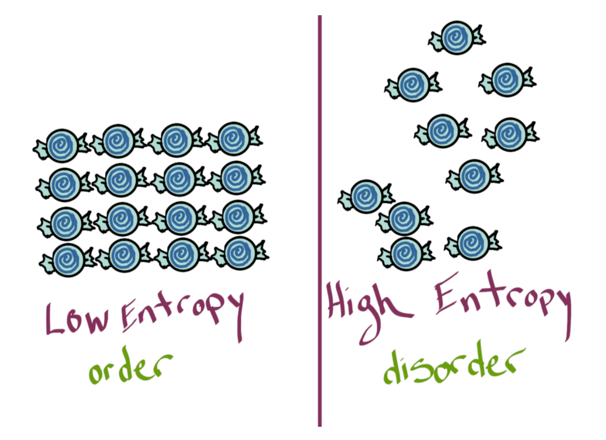 Low Entropy
order
High Entropy
disorder